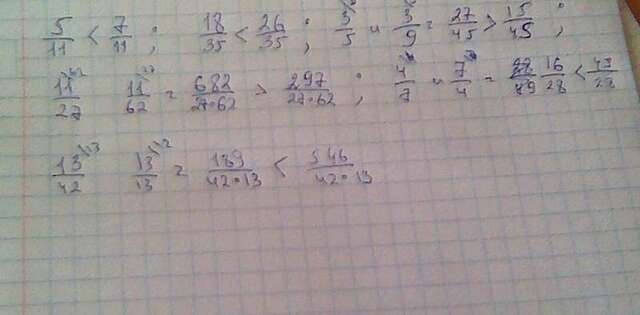 5/11 < 7/11 ; 18/35 < 26/35 ; 3/5 и 3/9 = 27/45 > 15/45 ;
11/27 11/62 = 682/27·62 > 297/27·62 ; 4/7 и 7/4 = 16/28 < 49/28
13/42 13/13 = 169/42·13 < 546/42·13